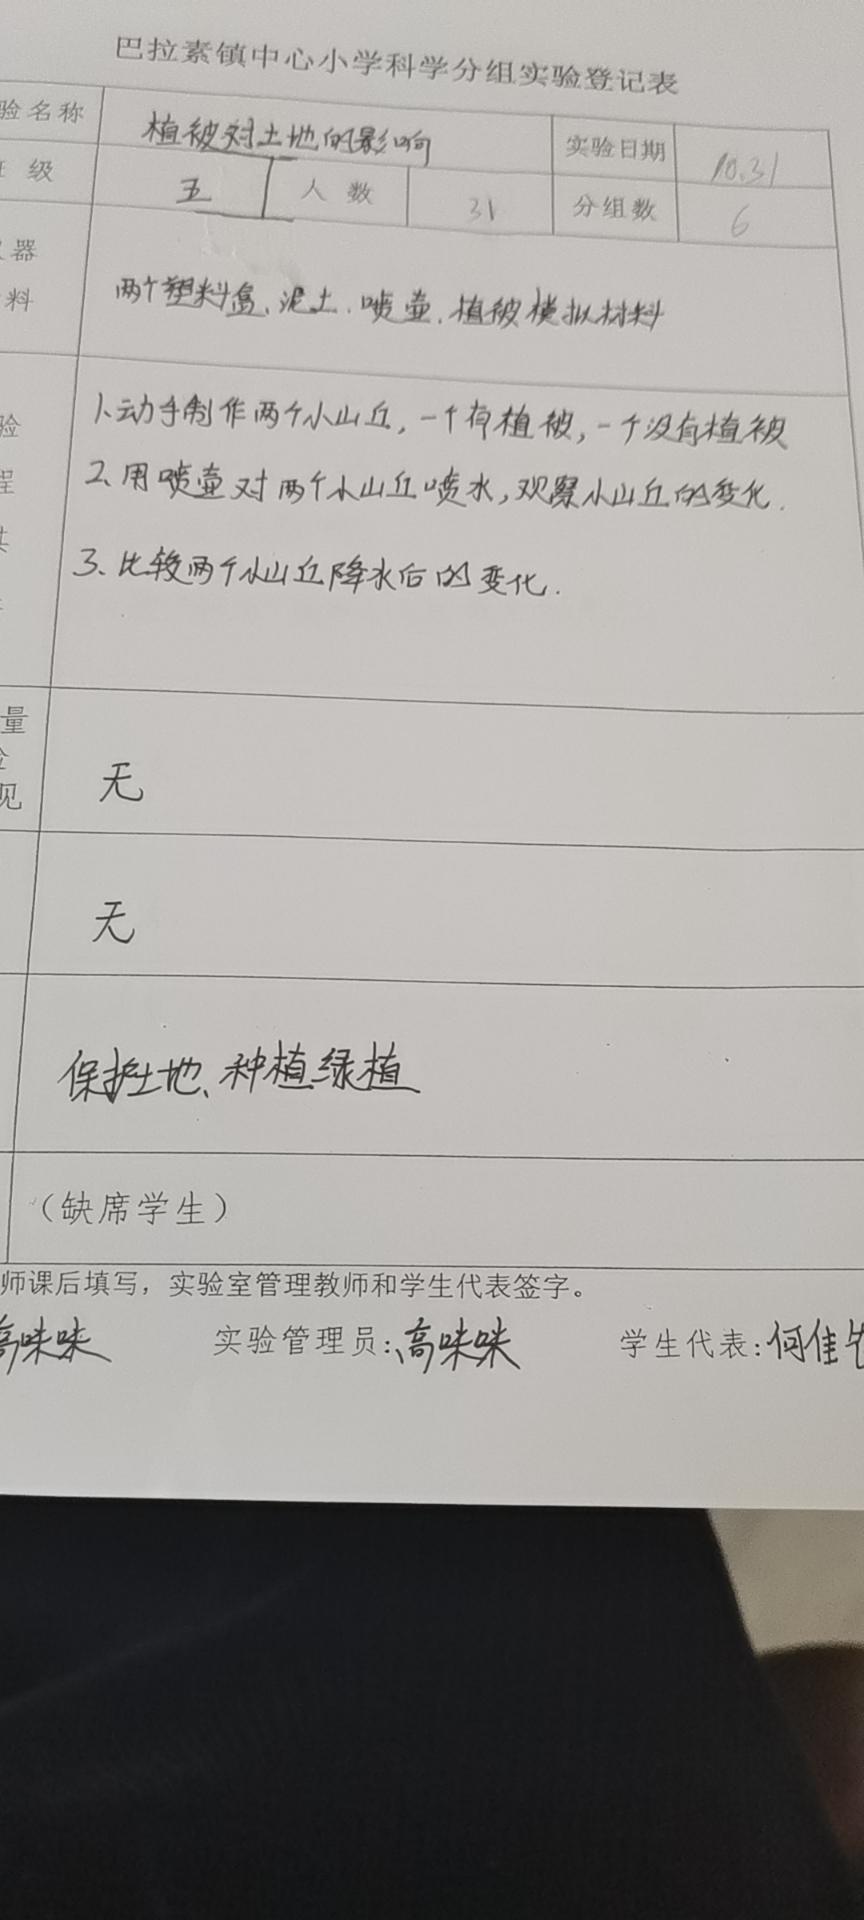 巴拉素镇中心小学科学分组实验登记表
验名称 植被对土地的影响 实验日期 10.31
级 五 人数 31 分组数 6
器
料 两个塑料盒、泥土、喷壶、植被模拟材料
1、动手制作两个小山丘,一个有植被,一个没有植被
验
2、用喷壶对两个小山丘喷水,观察小山丘的变化.
程
3、比较两个小山丘降水后的变化.
量
见 无
无
保护土地、种植绿植
(缺席学生)
师课后填写,实验室管理教师和学生代表签字。
高咪咪 实验管理员:高咪咪 学生代表:何佳